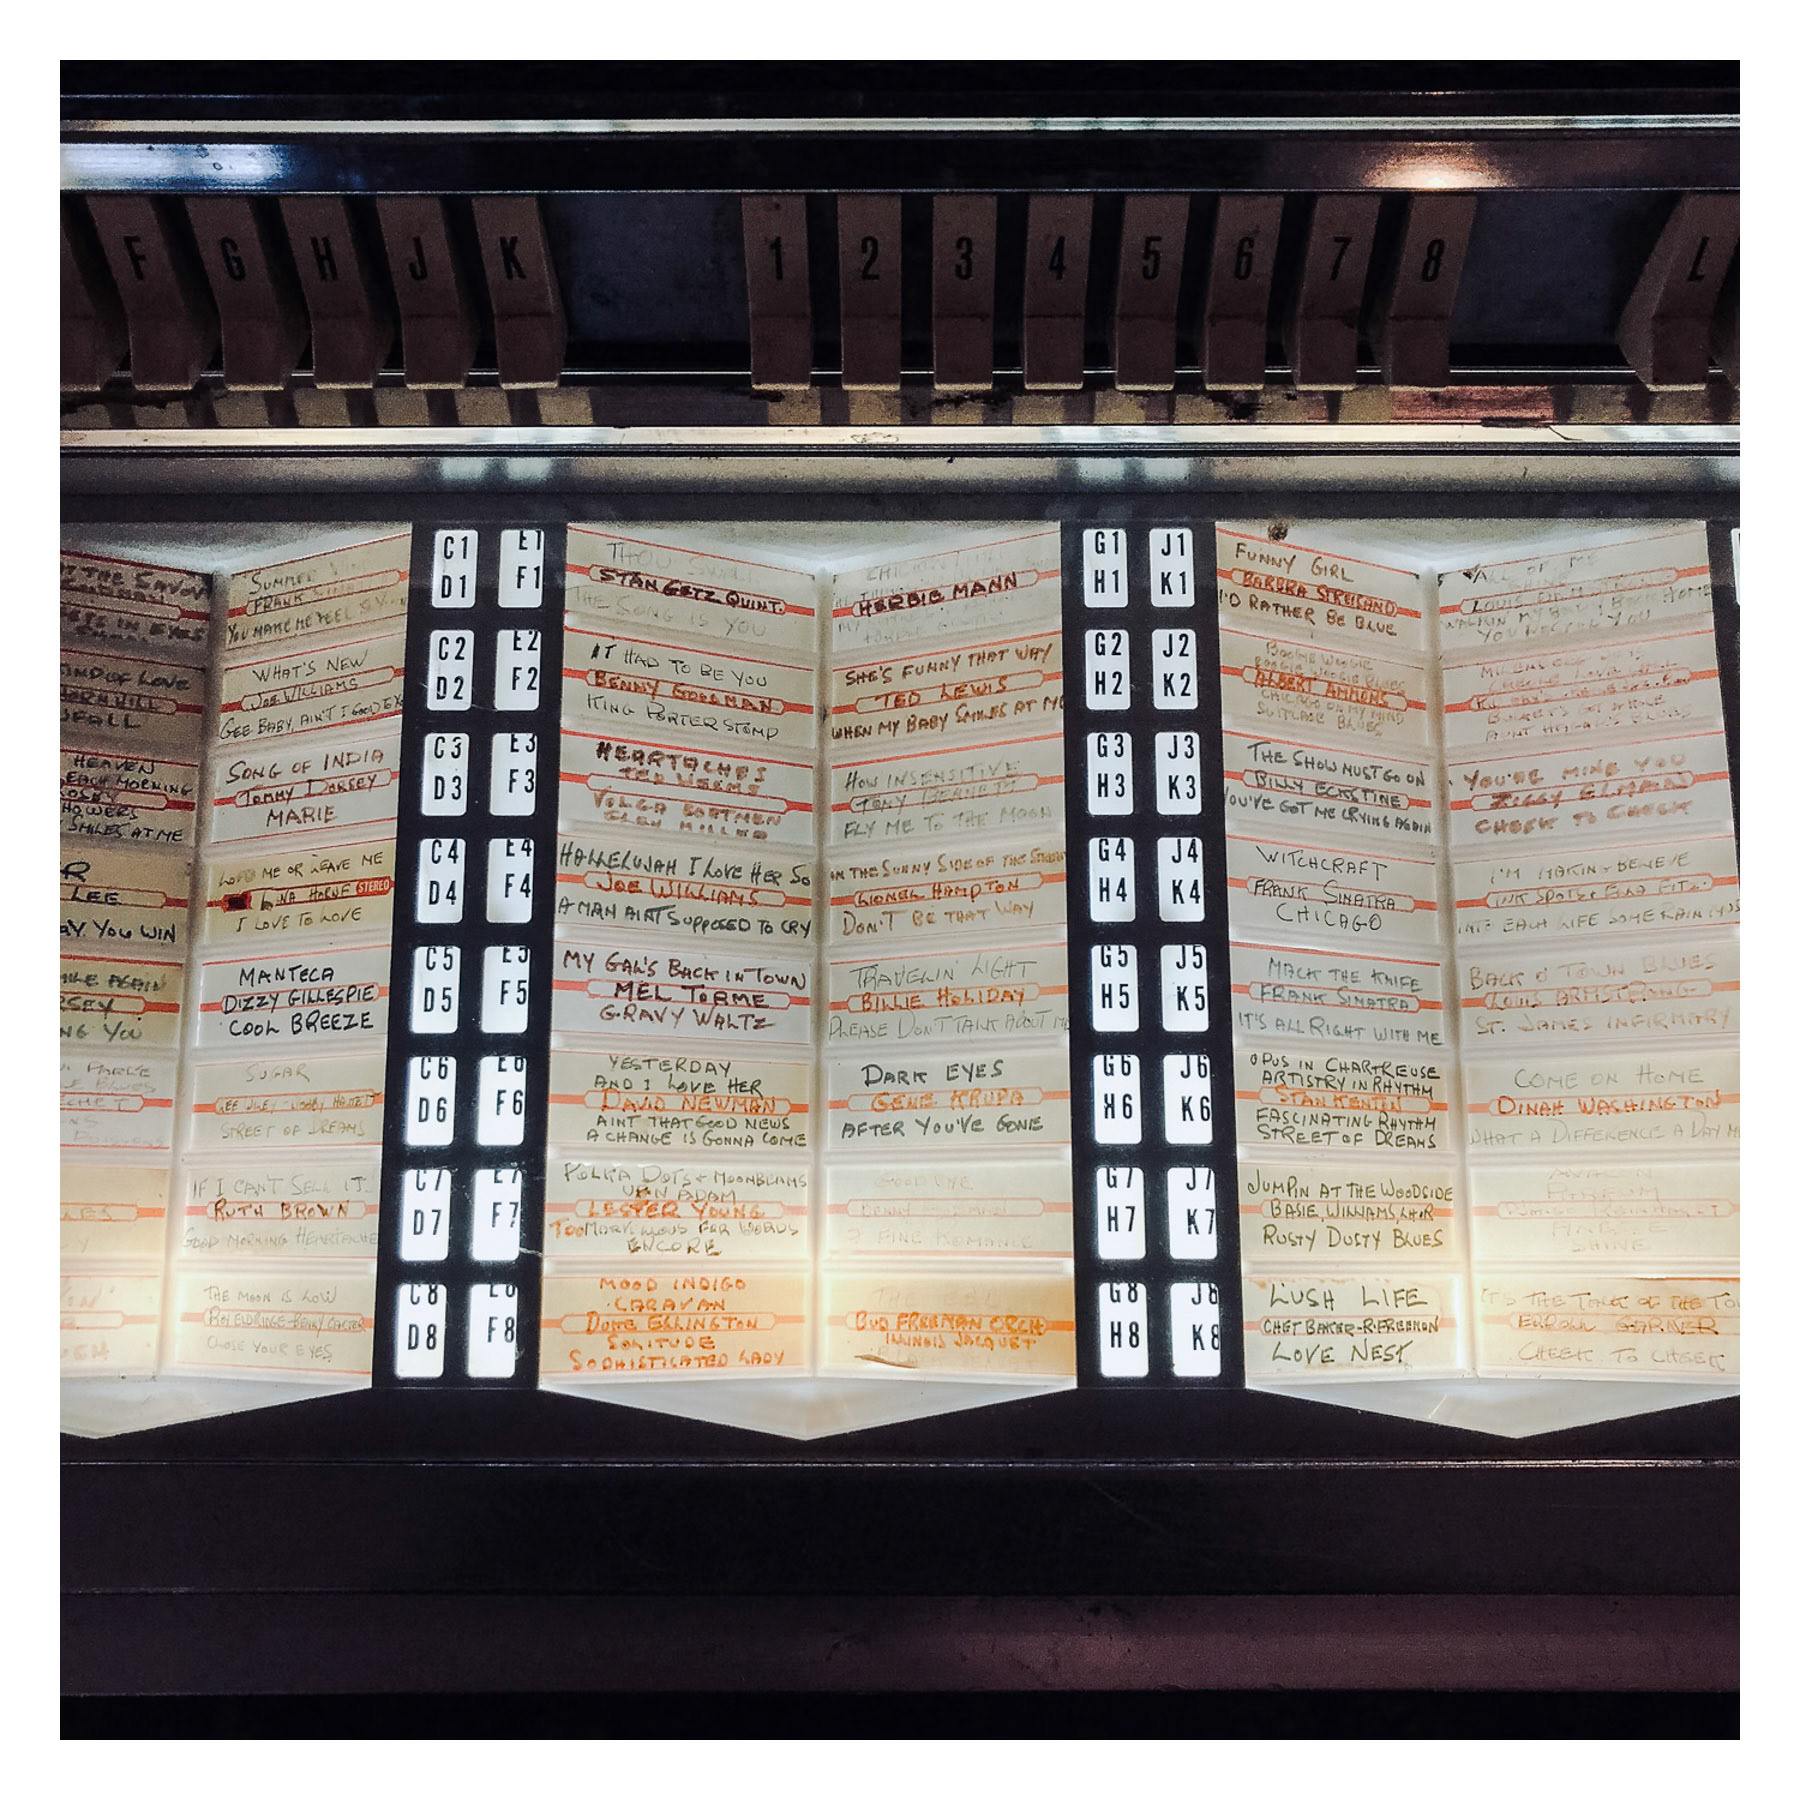 F G H J K 1 2 3 4 5 6 7 8 L
IN EYES
AND OF LOVE
FALL
HEAVEN
EACH MORNING
SMILES AT ME
LEE
YOU WIN
AGAIN
YOU
SUMMER
FRANK
YOU MAKE ME FEEL
WHAT'S NEW
JOE WILLIAMS
GEE BABY, AIN'T I GOOD TO
SONG OF INDIA
TOMMY DORSEY
MARIE
LOVE ME OR LEAVE ME
STEREO
I LOVE TO LOVE
MANTECA
DIZZY GILLESPIE
COOL BREEZE
SUGAR
LEE WILEY
STREET OF DREAMS
IF I CAN'T SELL IT
RUTH BROWN
GOOD MORNING HEARTACHE
THE MOON IS LOW
ROY ELDRIDGE-BENNY CARTER
CLOSE YOUR EYES
C1 E1
D1 F1
C2 E2
D2 F2
C3 E3
D3 F3
C4 E4
D4 F4
C5 E5
D5 F5
C6 E6
D6 F6
C7 E7
D7 F7
C8 E8
D8 F8
THOU
STAN GETZ QUINT.
THE SONG IS YOU
IT HAD TO BE YOU
BENNY GOODMAN
KING PORTER STOMP
HEARTACHES
TED WEEMS
VOLGA BOATMEN
GLEN MILLER
HALLELUJAH I LOVE HER SO
JOE WILLIAMS
A MAN AINT SUPPOSED TO CRY
MY GAL'S BACK IN TOWN
MEL TORME
GRAVY WALTZ
YESTERDAY
AND I LOVE HER
DAVID NEWMAN
AINT THAT GOOD NEWS
A CHANGE IS GONNA COME
POLKA DOTS + MOONBEAMS
ADAM
LESTER YOUNG
TOO MARVELOUS FOR WORDS
ENCORE
MOOD INDIGO
CARAVAN
DUKE ELLINGTON
SOLITUDE
SOPHISTICATED LADY
HERBIE MANN
SHE'S FUNNY THAT WAY
TED LEWIS
WHEN MY BABY SMILES AT ME
HOW INSENSITIVE
TONY BENNETT
FLY ME TO THE MOON
ON THE SUNNY SIDE OF THE STREET
LIONEL HAMPTON
DON'T BE THAT WAY
TRAVELIN' LIGHT
BILLIE HOLIDAY
PLEASE DON'T TALK ABOUT ME
DARK EYES
GENE KRUPA
AFTER YOU'VE GONE
GOODBYE
BENNY GOODMAN
A FINE ROMANCE
BUD FREEMAN ORCH
ILLINOIS JACQUET
G1 J1
H1 K1
G2 J2
H2 K2
G3 J3
H3 K3
G4 J4
H4 K4
G5 J5
H5 K5
G6 J6
H6 K6
G7 J7
H7 K7
G8 J8
H8 K8
FUNNY GIRL
BARBRA STREISAND
I'D RATHER BE BLUE
BOOGIE WOOGIE
BOOGIE WOOGIE BLUES
ALBERT AMMONS
CHICAGO ON MY MIND
SUITCASE BLUES
THE SHOW MUST GO ON
BILLY ECKSTINE
YOU'VE GOT ME CRYING AGAIN
WITCHCRAFT
FRANK SINATRA
CHICAGO
MACK THE KNIFE
FRANK SINATRA
IT'S ALL RIGHT WITH ME
OPUS IN CHARTREUSE
ARTISTRY IN RHYTHM
STAN KENTON
FASCINATING RHYTHM
STREET OF DREAMS
JUMPIN AT THE WOODSIDE
BASIE, WILLIAMS, LH+R
RUSTY DUSTY BLUES
LUSH LIFE
CHET BAKER-R.FREEMON
LOVE NEST
ALL OF ME
SHINE
LOUIS ARMSTRONG
WALKIN MY BABY BACK HOME
YOU
AUNT HAGAR'S BLUES
YOU'RE MINE YOU
ZIGGY ELMAN
CHEEK TO CHEEK
I'M MAKING BELIEVE
INK SPOTS + ELLA FITZ.
INTO EACH LIFE SOME RAIN MUS
BACK O' TOWN BLUES
LOUIS ARMSTRONG
ST. JAMES INFIRMARY
COME ON HOME
DINAH WASHINGTON
WHAT A DIFFERENCE A DAY M
AVALON
DJANGO REINHARDT
SHINE
IT'S THE TALK OF THE TO
ERROLL GARNER
CHEEK TO CHEEK